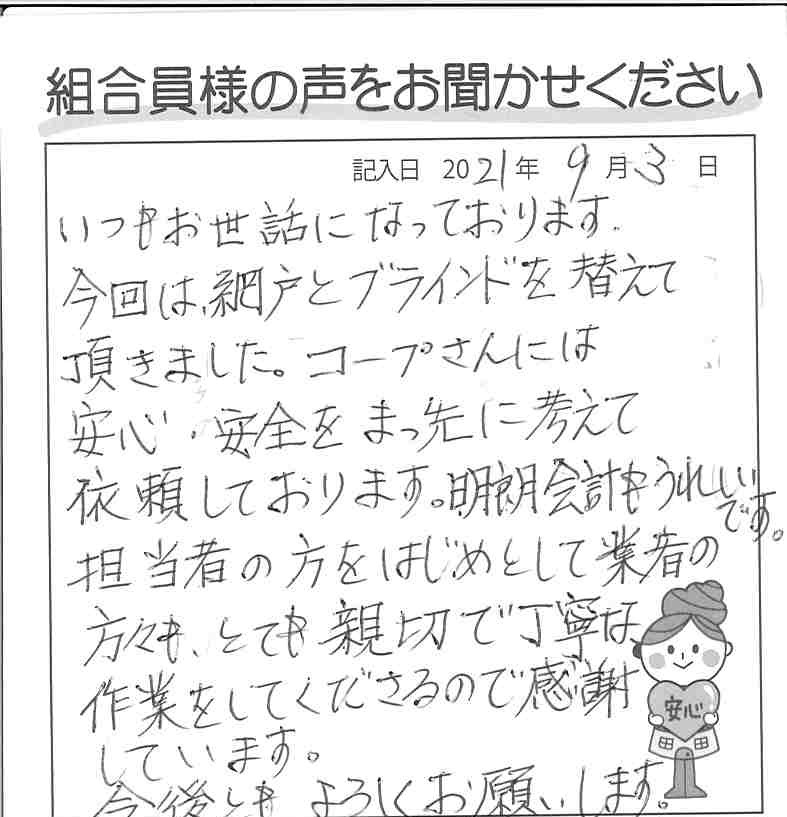 組合員様の声をお聞かせください
記入日 2021年 9月3日
いつもお世話になっております。
今回は、網戸とブラインドを替えて
頂きました。コープさんには
安心・安全をまっ先に考えて
依頼しております。明朗会計もうれしい
です。
担当者の方をはじめとして業者の
方々も、とても親切で丁寧な
作業をしてくださるので感謝
しています。
今後とも よろしくお願いします。
安心